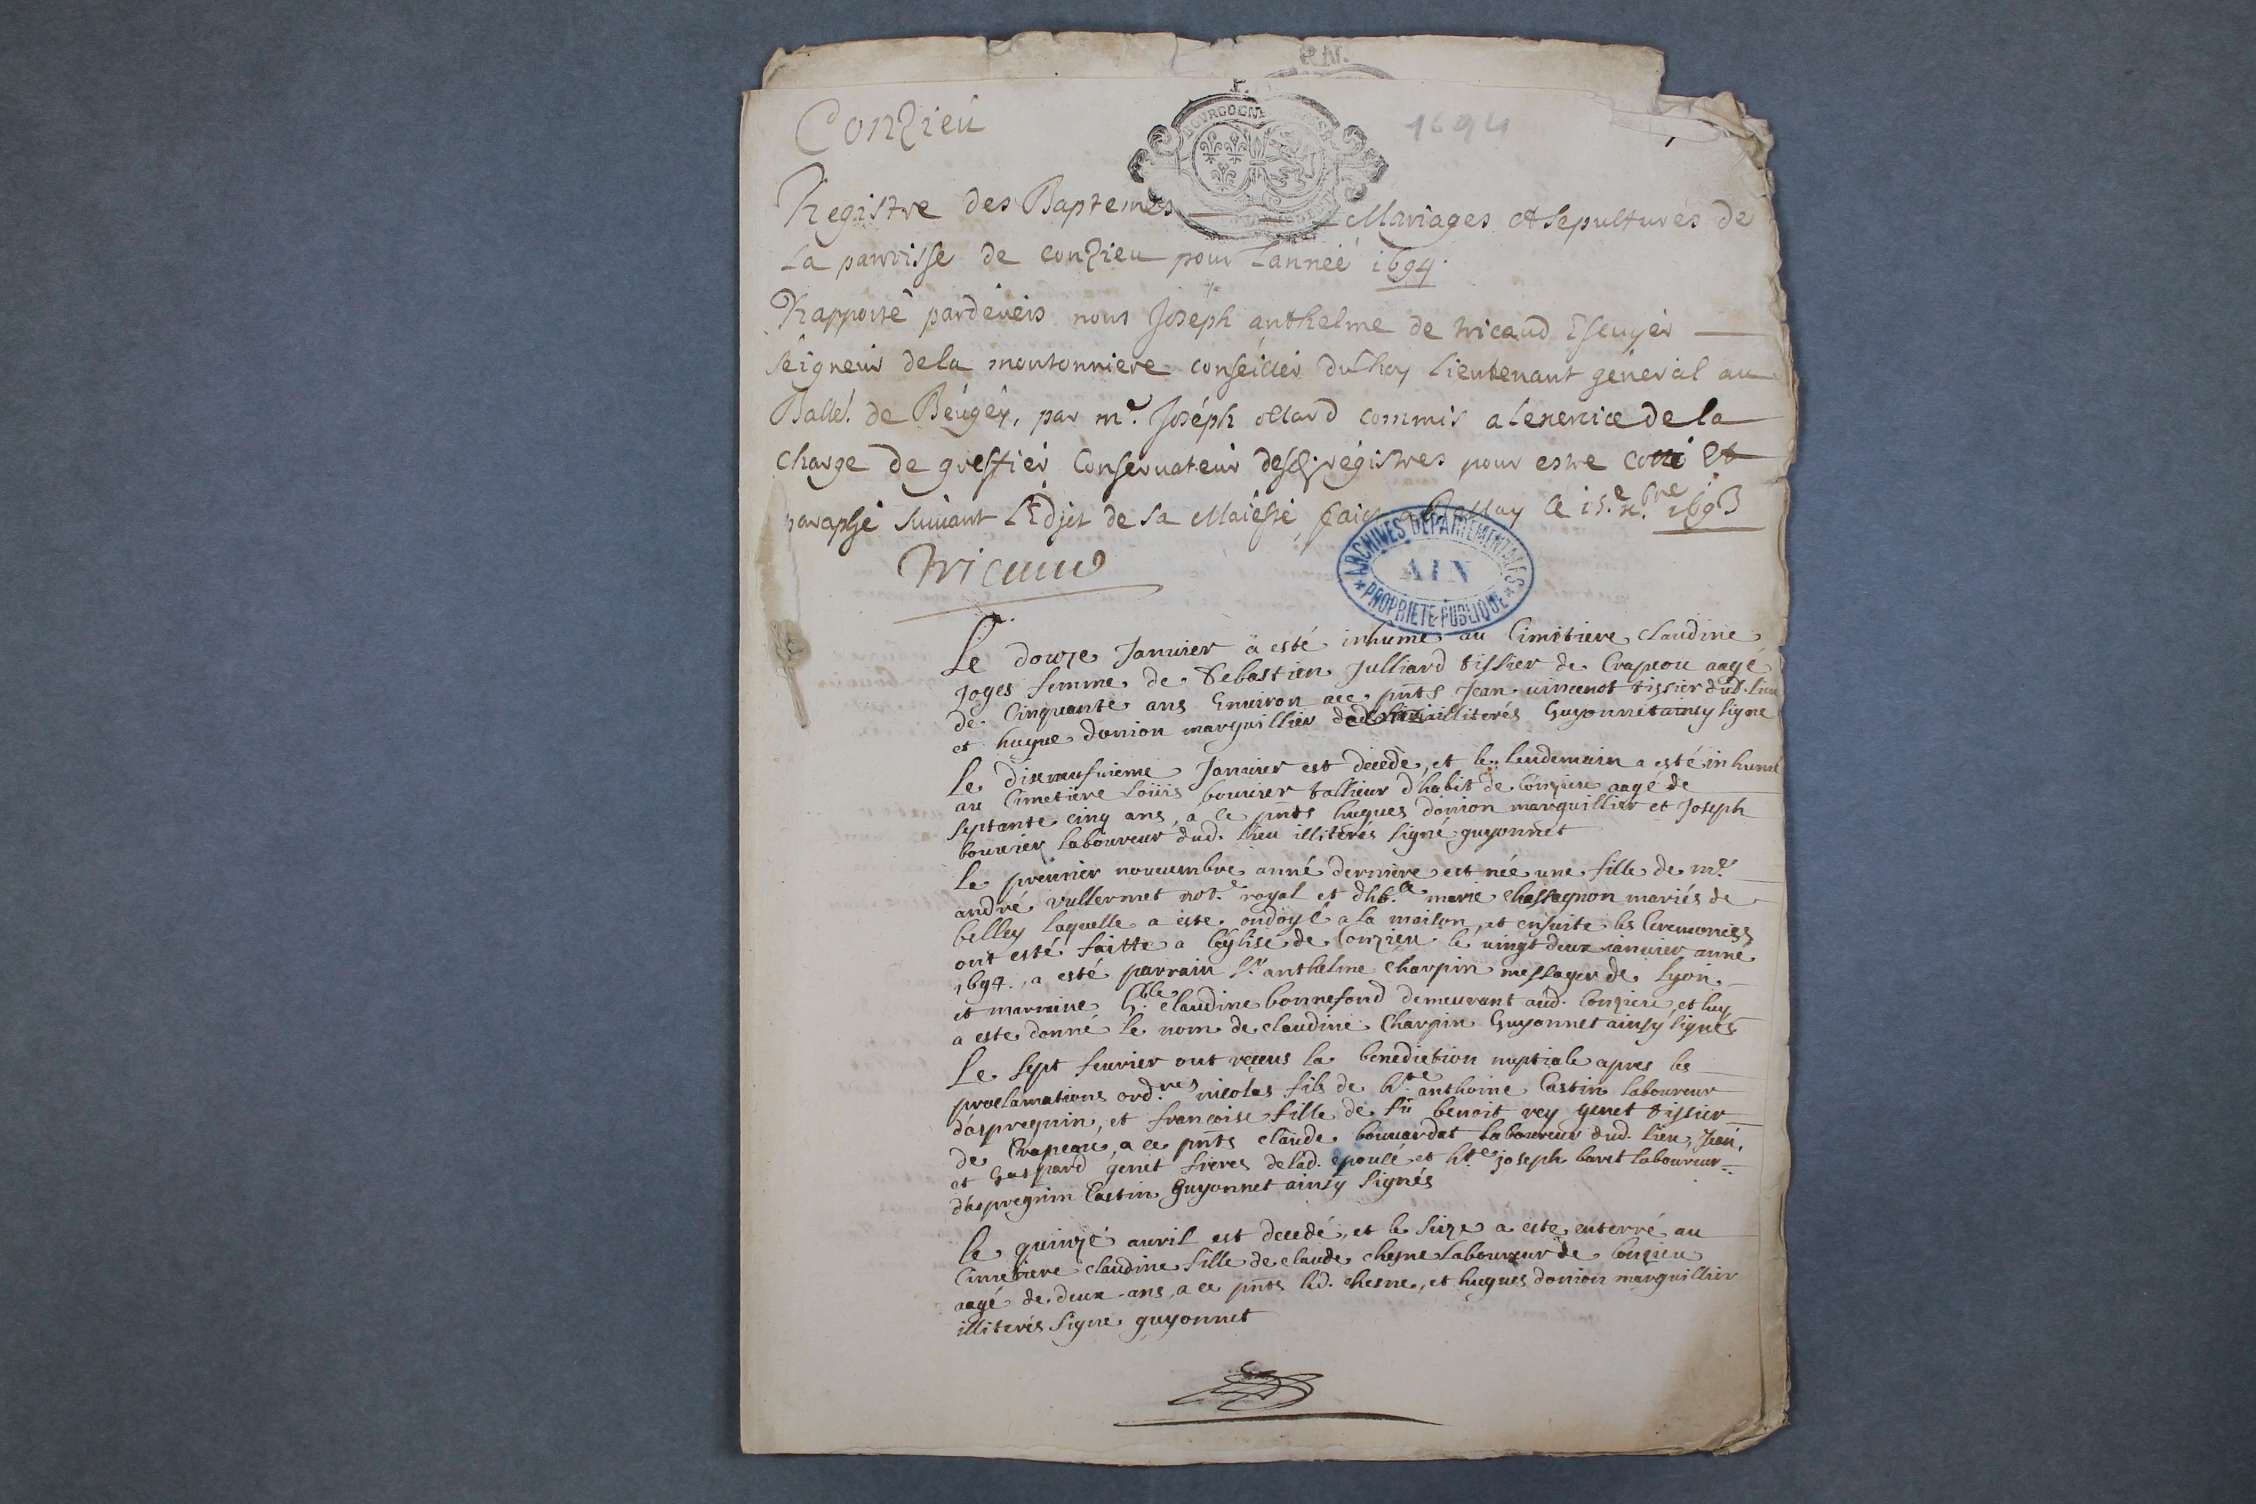 Conzieu
1694
Registre des Baptemes Mariages et sepultures de
La parroisse de conzieu pour Lanneé 1694.
Rapporté pardeveis nous Joseph anthelme de tricaud Escuyer
seigneur dela moutonniere conseiller du Roy Lieutenant general au
Ballé. de Beugéy, par me. Joséph ollard commis a lexercice de la
charge de greffier Conservateur desd. régistres pour estre cotté et
paraphé suivant LEdjct de sa Maiesté, faict a Bellay le 15.e xbre 1693
Tricaud
ARCHIVES DEPARTEMENTALES
AIN
PROPRIETE PUBLIQUE
Le douze Januier a esté inhumé au Cimitiere Claudine
Joges femme de Sebastien Julliard tissier de Crapeou aagé
de Cinquante ans Enuiron a ce pnts Jean vincenot tissier dud. lieu
et hugue donion marguillier illiterés Guyonnet ainsy signe
Le dixneufuieme Januier est decedé, et le lendemain a esté inhumé
au Cimetiere Loüis bouurier tallieur dhabit de Conzieu aagé de
septante cinq ans, a ce pnts hugues donion marguillier et Joseph
bouurier laboureur dud. lieu illiterés signé guyonnet
Le premier nouuembre anné derniere est née une fille de me.
andré vullermet not.e royal et dhble. marie Chassagnon mariés de
belley laquelle a este ondoyé a la maison, et ensuite les Ceremonies
ont esté faitte a léglise de Conzieu le vingt deux ianuier anné
1694., a esté parrain sr. anthelme Charpin messager de Lyon
et marraine h.ble Claudine bonnefond demeurant aud. Conzieu, et luy
a este donné le nom de claudine Charpin Guyonnet ainsy signés
Le sept feurier ont reçeus la benediction nuptiale apres les
proclamations ord.res nicolas fils de h.te anthoine Castin laboureur
daspregnin, et françoise fille de fû benoit rey genet tissier
de Crapeau, a ce pnts claude bouuardat laboureur dud. lieu, Jean,
et Gaspard genet freres delad. epousé et h.te joseph baret laboureur
daspregnin Castin Guyonnet ainsy signés
Le quinze auril est decedé, et le sieze a este enterré au
Cimetiere claudine fille de claude chesne laboureur de Conzieu
aagé de deux ans, a ce pnts led. chesne, et hugues donion marguillier
illiterés signe guyonnet